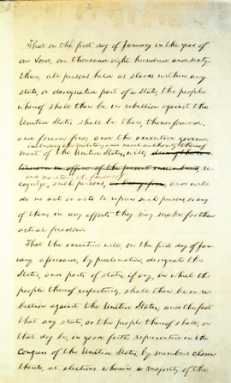 That on the first day of January in the year of
our Lord, one thousand eight hundred and sixty-
three, all persons held as slaves within any
state, or designated part of a state, the people
whereof shall then be in rebellion against the
United States shall be then, thenceforward,
and forever free; and the executive
including the military and naval authority thereof
ment of the United States, will,
re-
cognize such persons, and will
do no act or acts to repress such persons, or any
of them, in any efforts they may make for their
actual freedom.
That the executive will, on the first day of Jan-
uary aforesaid, by proclamation, designate the
States, and parts of states, if any, in which the
people thereof respectively, shall then be in re-
bellion against the United States; and the fact
that any state, or the people thereof shall, on
that day be, in good faith represented in the
Congress of the United States, by members chosen
thereto, at elections wherein a majority of the